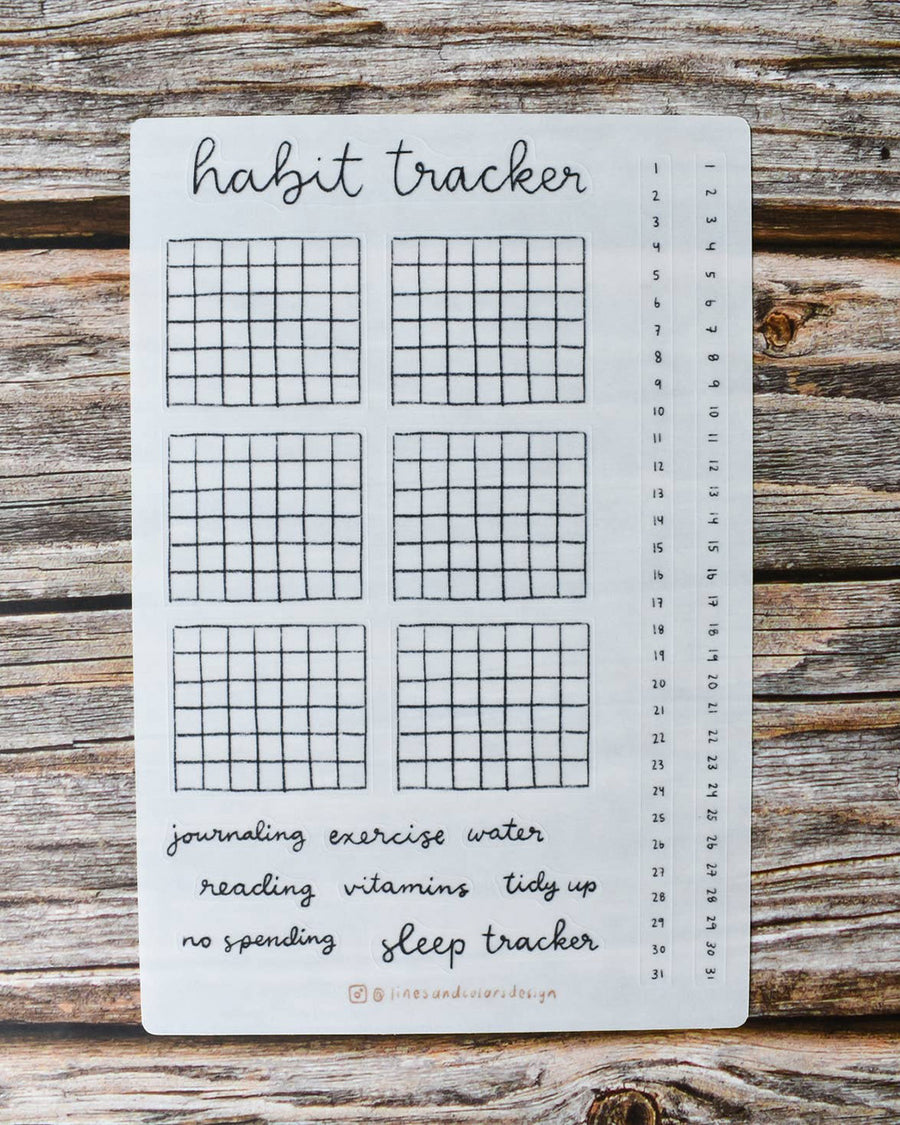 habit tracker
journaling exercise water
reading vitamins tidy up
no spending sleep tracker
@linesandcolorsdesign
1
2
3
4
5
6
7
8
9
10
11
12
13
14
15
16
17
18
19
20
21
22
23
24
25
26
27
28
29
30
31
1
2
3
4
5
6
7
8
9
10
11
12
13
14
15
16
17
18
19
20
21
22
23
24
25
26
27
28
29
30
31